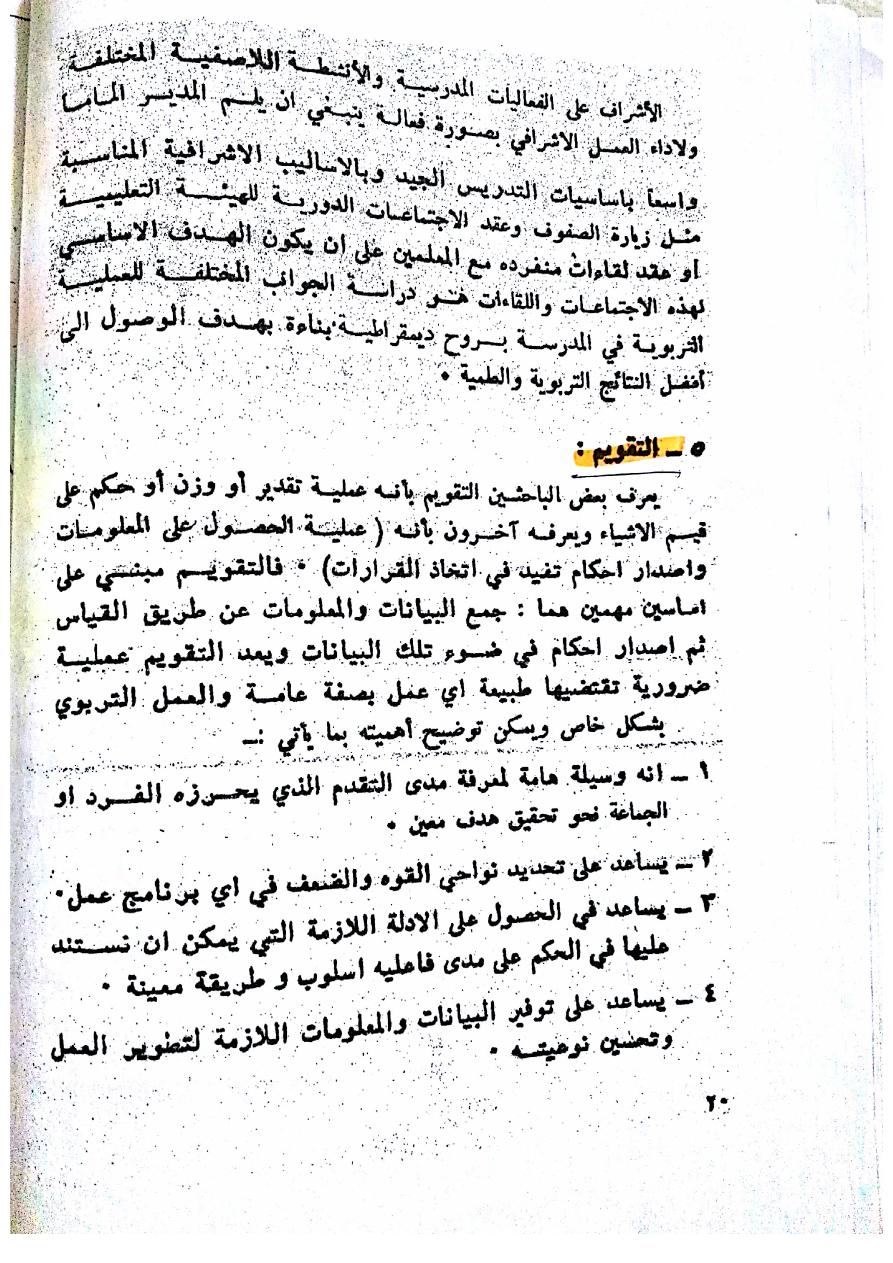 الأشراف على الفعاليات المدرسية والأنشطة اللاصفية المختلفة
ولاداء العمل الاشرافي بصورة فعالة ينبغي ان يلم المدير الماما
واسعا باساسيات التدريس الجيد وبالاساليب الاشرافية المناسبة
مثل زيارة الصفوف وعقد الاجتماعات الدورية للهيئة التعليمية
أو عقد لقاءات منفرده مع المعلمين على ان يكون الهدف الاساسي
لهذه الاجتماعات واللقاءات هو دراسة الجوانب المختلفة للعملية
التربوية في المدرسة بروح ديمقراطية بناءة بهدف الوصول الى
أفضل النتائج التربوية والعلمية ٠
٥ ــ التقويم :
يعرف بعض الباحثين التقويم بأنه عملية تقدير أو وزن أو حكم على
قيم الاشياء ويعرفه آخرون بأنه ( عملية الحصول على المعلومات
واصدار احكام تفيد في اتخاذ القرارات) ٠ فالتقويم مبني على
اساسين مهمين هما : جمع البيانات والمعلومات عن طريق القياس
ثم اصدار احكام في ضوء تلك البيانات ويعد التقويم عملية
ضرورية تقتضيها طبيعة اي عمل بصفة عامة والعمل التربوي
بشكل خاص ويمكن توضيح أهميته بما يأتي :ــ
١ ــ انه وسيلة هامة لمعرفة مدى التقدم الذي يحرزه الفرد او
الجماعة نحو تحقيق هدف معين ٠
٢ ــ يساعد على تحديد نواحي القوه والضعف في اي برنامج عمل٠
٣ ــ يساعد في الحصول على الادلة اللازمة التي يمكن ان نستند
عليها في الحكم على مدى فاعليه اسلوب و طريقة معينة ٠
٤ ــ يساعد على توفير البيانات والمعلومات اللازمة لتطوير العمل
وتحسين نوعيته ٠
٢٠